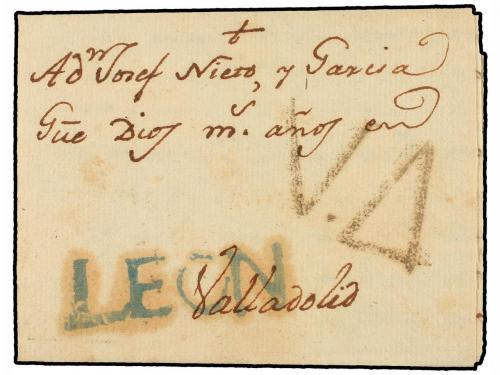 +
A dⁿ Josef Nieto, y Garcia
Gũe Dios mˢ. años en
V.4
LEON
Valladolid